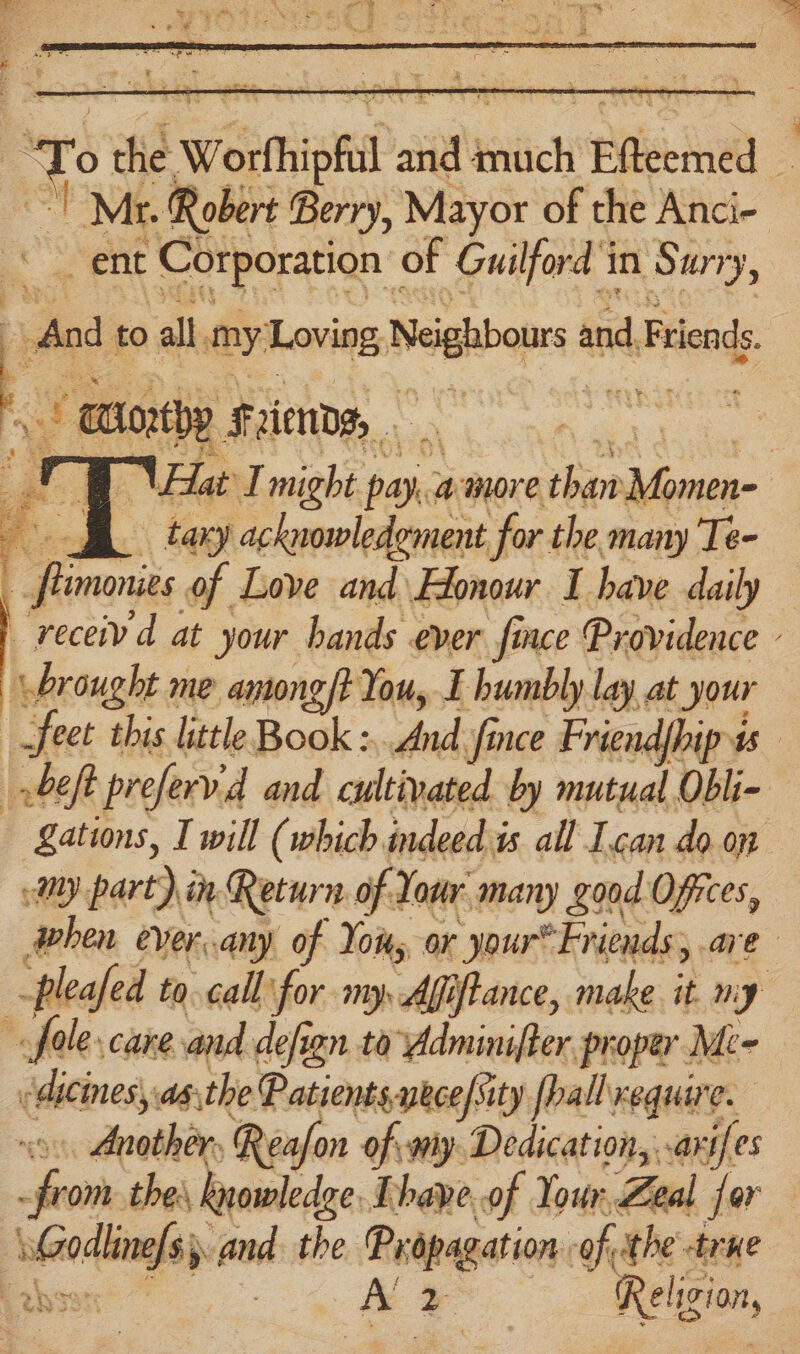 To the Worſhipful and much Eſteemed
Mr. Robert Berry, Mayor of the Anci-
ent Corporation of Guilford in Surry,
And to all my Loving Neighbours and Friends.
Worthy Friends,
THat I might pay a more than Momen-
tary acknowledgment for the many Te-
ſtimonies of Love and Honour I have daily
receiv'd at your hands ever ſince Providence
brought me amongſt You, I humbly lay at your
feet this little Book: And ſince Friendſhip is
beſt preſerv'd and cultivated by mutual Obli-
gations, I will (which indeed is all I can do on
my part) in Return of Your many good Offices,
when ever any of You, or your Friends, are
pleaſed to call for my Aſſiſtance, make it my
ſole care and deſign to Adminiſter proper Me-
dicines, as the Patients neceſsity ſhall require.
Another Reaſon of my Dedication, ariſes
from the knowledge I have of Your Zeal for
Godlineſs, and the Propagation of the true
A 2 Religion,